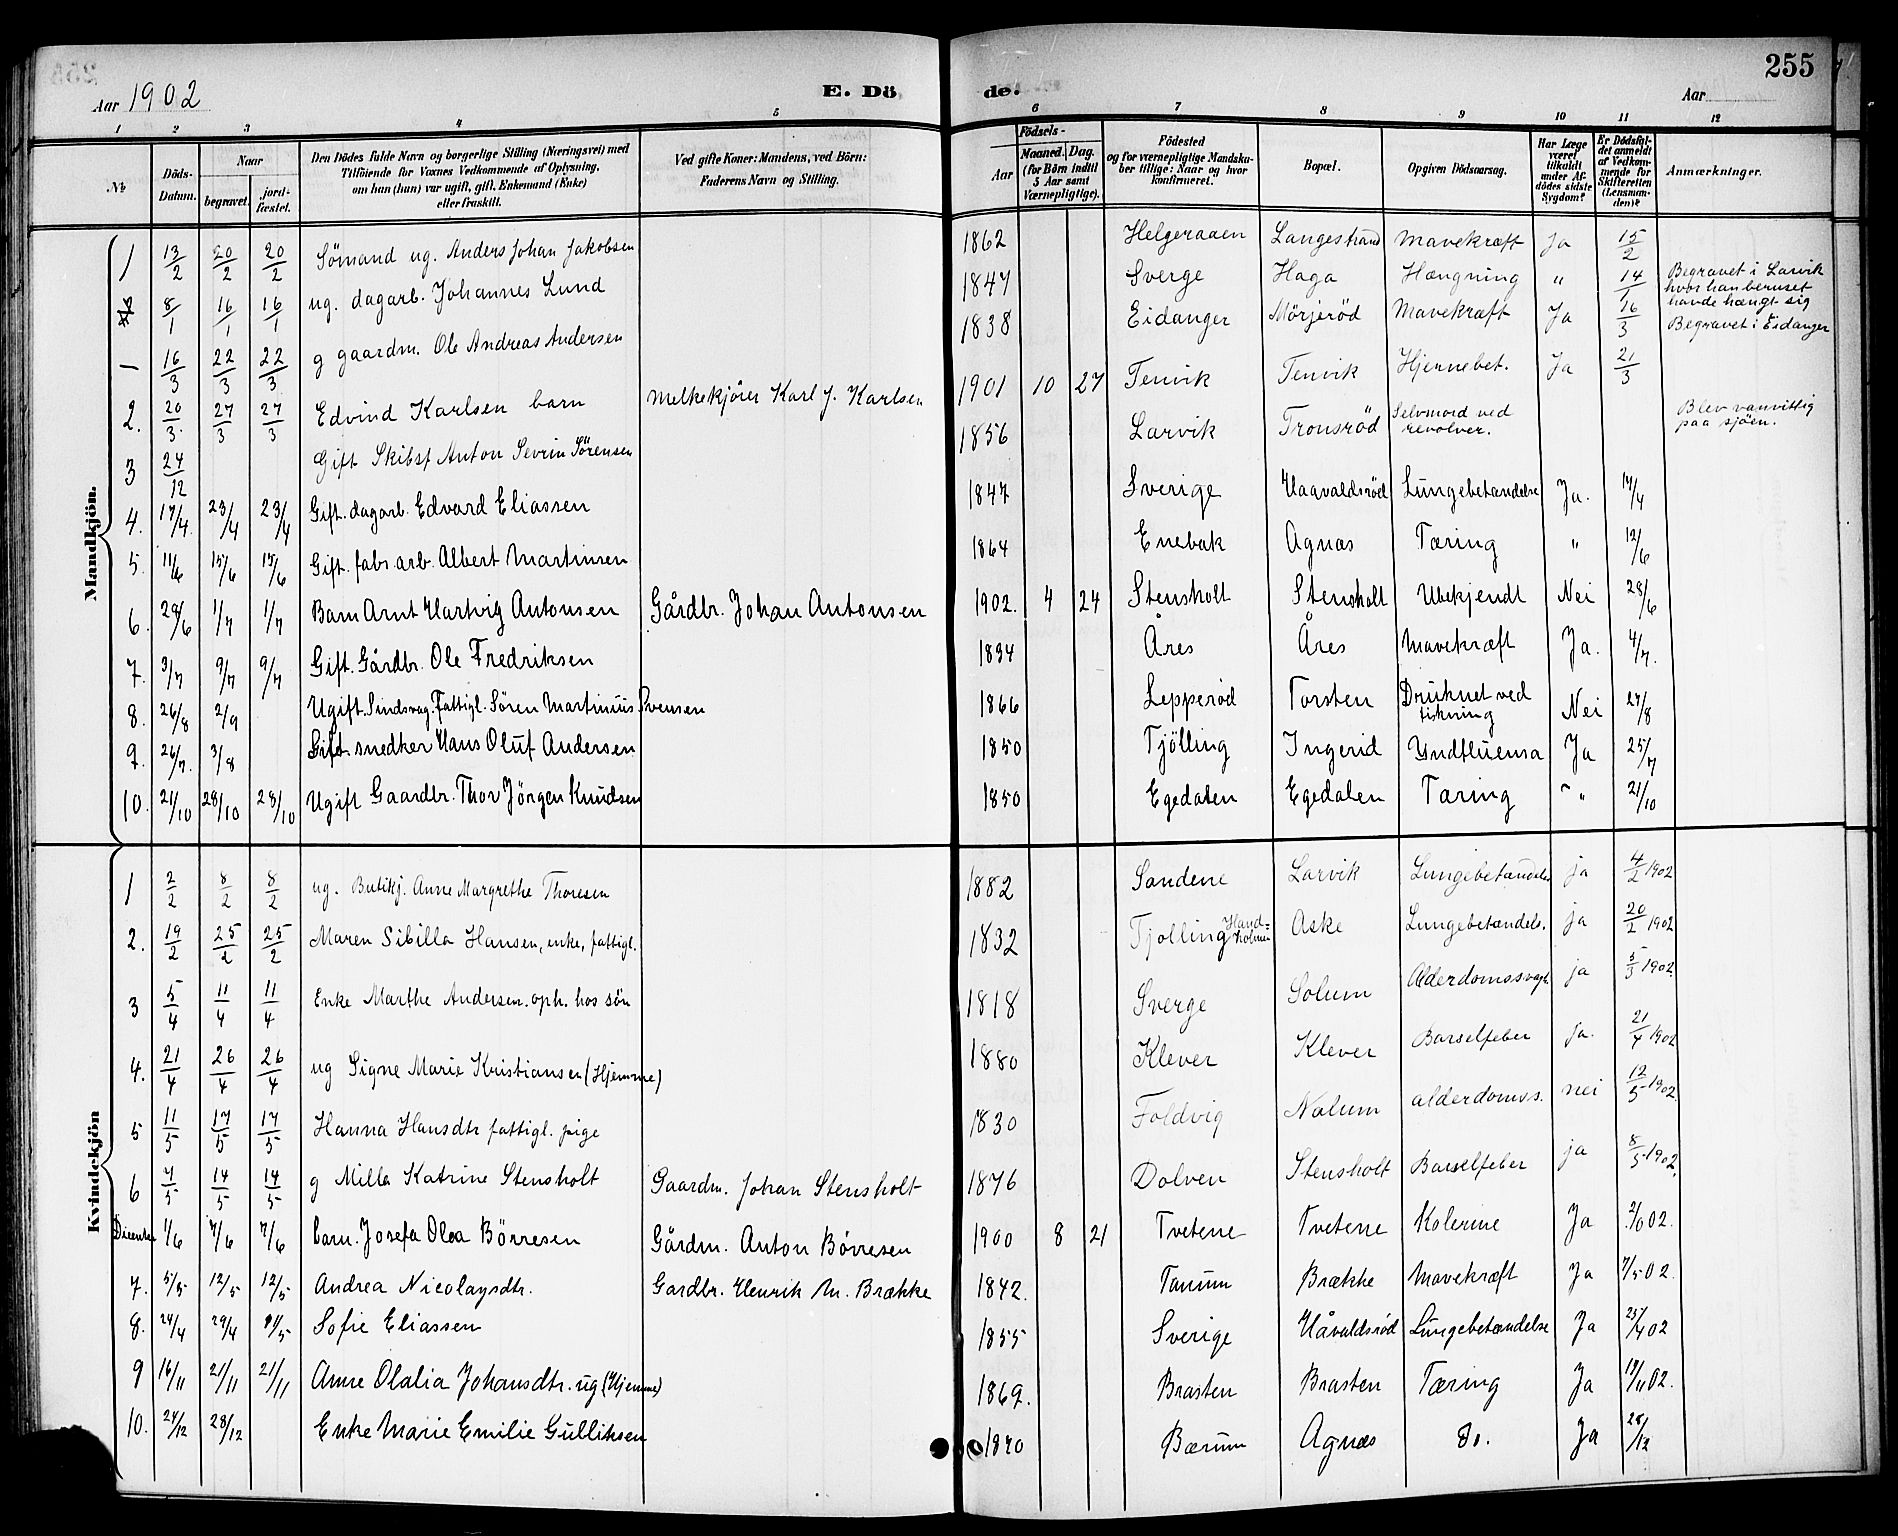 255
Aar 1902
E. Döde.
Aar
1 2 3 4 5 6 7 8 9 10 11 12
№
Döds-Datum.
Naar
begravet.
jord-fæstet.
Den Dödes fulde Navn og borgerlige Stilling (Næringsvei) med Tilföiende for Voxnes Vedkommende af Oplysning, om han (hun) var ugift, gift, Enkemand (Enke) eller fraskilt.
Ved gifte Koner: Mandens, ved Börn: Faderens Navn og Stilling.
Födsels-
Aar
Maaned. Dag.
(for Börn indtil 5 Aar samt Værnepligtige).
Födested og for værnepligtige Mandskaber tillige: Naar og hvor konfirmeret.
Bopæl.
Opgiven Dödsaarsag.
Har Læge været tilkaldt under Afdödes sidste Sygdom?
Er Dödsfaldet anmeldt af Vedkommende for Skifteretten (Lensmanden)?
Anmærkninger.
Mandkjön.
1 13/2 20/2 20/2 Sömand ug. Anders Johan Jakobsen 1862 Helgeraaen Langestrand Mavekræft Ja 15/2
8/1 16/1 16/1 ug. dagarb. Johannes Lund 1847 Sverge Haga Hængning " 14/1 Begravet i Larvik hvor han beruset havde hængt sig
– 16/3 22/3 22/3 g gaardm. Ole Andreas Andersen 1838 Eidanger Mörjeröd Mavekræft Ja 16/3 Begravet i Eidanger
2. 20/3 27/3 27/3 Edvind Karlsen barn Melkekjörer Karl J. Karlsen 1901 10 27 Tenvik Tenvik Hjernebet. Ja 21/3
3 24/12 Gift Skibsf Anton Sevrin Sörensen 1856 Larvik Tronsröd Selvmord ved revolver. Blev vanvittig paa sjöen.
4. 17/4 23/4 23/4 Gift. dagarb. Edvard Eliassen 1847 Sverige Haavaldsröd Lungebetændelse Ja. 17/4
5. 11/6 15/6 15/6 Gift. fabr. arb. Albert Martinsen 1864 Enebak Agnæs Tæring " 12/6
6. 28/6 1/7 1/7 Barn Arnt Hartvig Antonsen Gårdbr. Johan Antonsen 1902. 4 24 Stensholt Stensholt Ubekjendt Nei 28/6
7. 3/7 9/7 9/7 Gift. Gårdbr. Ole Fredriksen 1834 Åres Åres Mavekræft Ja. 4/7.
8. 26/8 2/9 Ugift. Sindsvag. Fattigl. Sören Martinius Svensen 1866 Lepperöd Torsten Druknet ved fiskning Nei 27/8
9. 26/7. 3/8 Gift. snedker Hans Oluf Andersen 1850 Tjölling Ingerid Yndfluensa Ja 25/7
10. 21/10 28/10 28/10 Ugift Gaardbr. Thor Jörgen Knudsen 1850 Egedalen Egedalen Tæring " 21/10
Kvindekjön
1 2/2 8/2 8/2 ug. Butikj. Anne Margrethe Thoresen 1882 Sandene Larvik Lungebetændels ja 4/2 1902
2. 19/2 25/2 25/2 Maren Sibilla Hansen, enke, fattigl. 1832 Tjölling Aske Lungebetændels. ja 20/2 1902
3 5/4 11/4 11/4 Enke Marthe Andersen. oph. hos sön 1818 Sverge Solum Alderdomssvagh. ja 1902.
4. 21/4 26/4 26/4 ug Signe Marie Kristiansen (Hjemme) 1880 Klever Klever Barselfeber ja. 21/4 1902
5 11/5 17/5 17/5 Hanna Hansdtr fattigl. pige 1830 Foldvig Nalum alderdomss. nei 12/5 1902
6 7/5 14/5 14/5 g Milla Katrine Stensholt Gaardm. Johan Stensholt 1876 Dolven Stensholt Barselfeber ja 8/5 1902
1/6 7/6 7/6 barn. Josefa Olea Börresen Gårdm. Anton Börresen 1900 8 21 Tvetene Tvetene Kolerine Ja 02.
7. 5/5 12/5 12/5 Andrea Nicolaysdtr. Gardbr. Henrik M. Brække 1842. Tanum Brække Mavekræft Ja 7/5 02.
8. 24/4 29/4 Sofie Eliassen 1855 Sverige Håvaldsröd Lungebetændelse Ja 25/4 02
9 16/11 21/11 21/11 Anne Olalia Johansdtr. ug (Hjemme) 1869. Brasten Brasten Tæring Ja 19/11 02.
10. 24/12 28/12 Enke Marie Emilie Gulliksen 1840 Bærum Agnæs do. Ja 28/12